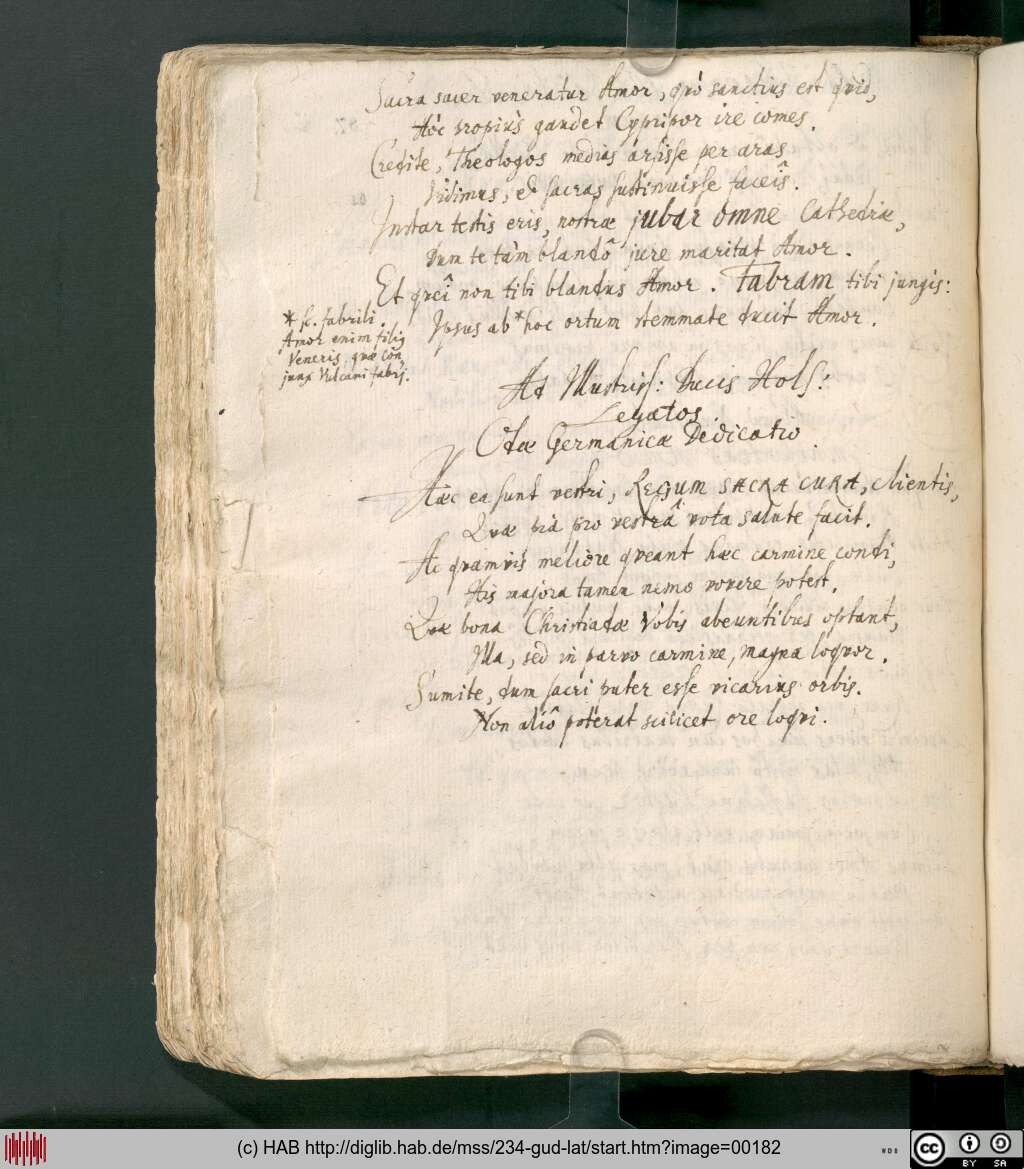 Sacra sacer veneratur Amor, qvò sanctius est qvid,
Hôc propiùs gaudet Cypripor ire comes.
Credite, Theologos medius arsisse per aras
Vidimus, et sacras sustinuisse faceis.
Instar testis eris, nostræ jubar omne Cathedræ,
Dum te tàm blandô jure maritat Amor.
Et qveî non tibi blandus Amor. Fabram tibi jungis:
Ipsus ab * hoc ortum stemmate ducit Amor.
* sc. fabrili.
Amor enim filig
Veneris, qvæ con
junx Vulcani fabrj.
Ad Illustriss: Ducis Hols:
Legatos
Odæ Germanicæ Dedicatio.
Hæc ea sunt vestri, REGUM SACRA CURA, clientis,
Qvæ pia pro vestrâ vota salute facit.
Ac qvamvis meliore qveant hæc carmine condi,
His majora tamen nemo vovere potest.
Qvæ bona Christiadæ Vobis abeuntibus optant,
Illa, sed in parvo carmine, magna loqvor.
Sumite, dum sacri puter esse vicarius orbis.
Non aliô poterat scilicet ore loqvi.
(c) HAB http://diglib.hab.de/mss/234-gud-lat/start.htm?image=00182
WDB
CC BY SA